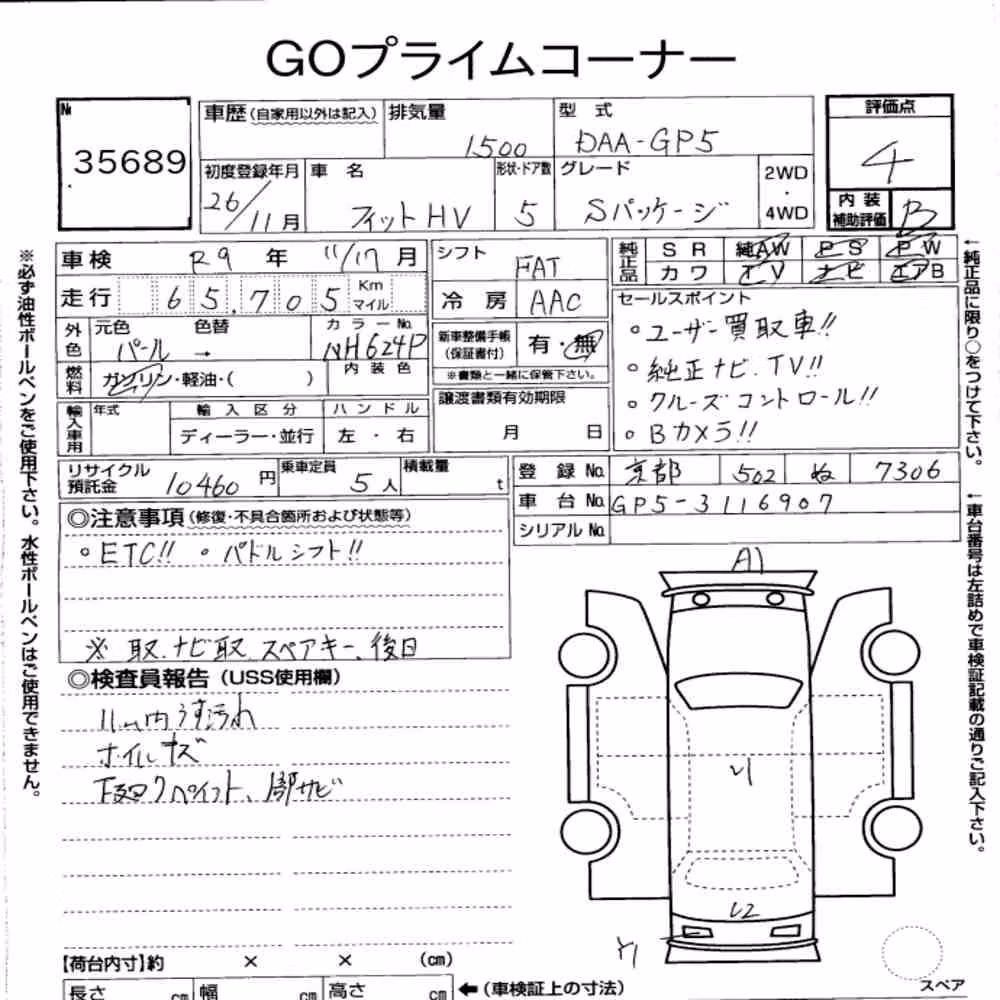 GOプライムコーナー
№
35689
車歴(自家用以外は記入)
排気量
1500
型 式
DAA-GP5
評価点
4
初度登録年月
26/11月
車 名
フィットHV
形状・ドア数
5
グレード
Sパッケージ
2WD
・
4WD
内 装
補助評価
B
車検 R9 年 11/17 月
シフト
FAT
純正品
S R 純AW P S P W
カワ T V ナ ビ エアB
走行 65,705 Km マイル
冷 房 AAC
セールスポイント
。ユーザー買取車!!
。純正ナビ.TV!!
。クルーズコントロール!!
。Bカメラ!!
外色
元色 色替
パール →
カラーNo.
NH624P
新車整備手帳
(保証書付)
有・無
※書類と一緒に保管下さい。
燃料
ガソリン・軽油・( )
内 装 色
輸入車用
年式
輸 入 区 分
ディーラー・並行
ハ ン ド ル
左 ・ 右
譲渡書類有効期限
月 日
リサイクル
預託金
10460 円
乗車定員
5人
積載量
t
登 録 No. 京都 502 ぬ 7306
車 台 No. GP5-3116907
シリアル No.
◎注意事項(修復・不具合箇所および状態等)
。ETC!! 。パドルシフト!!
※ 取.ナビ取.スペアキー、後日
◎検査員報告(USS使用欄)
ルーム内うす汚れ
ホイルキズ
下廻りペイント、1部サビ
A1
U2
【荷台内寸】約 × × (cm)
長さ cm 幅 cm 高さ cm ←(車検証上の寸法)
スペア
※必ず油性ボールペンをご使用下さい。水性ボールペンはご使用できません。
←純正品に限り○をつけて下さい。
←車台番号は左詰めで車検証記載の通りご記入下さい。